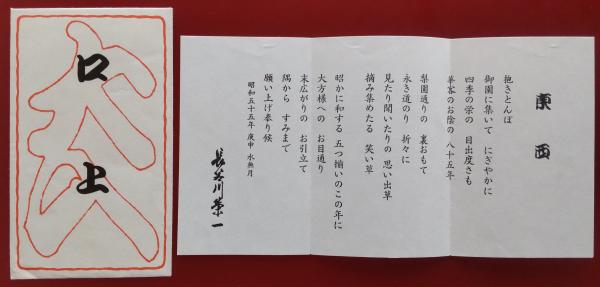 口上
東西
抱きとんぼ
御園に集いて にぎやかに
四季の栄の 目出度さも
華客のお陰の 八十五年
梨園通りの 裏おもて
永き道のり 折々に
見たり聞いたりの 思い出草
摘み集めたる 笑い草
昭かに和する 五つ揃いのこの年に
大方様への お目通り
末広がりの お引立て
隅から すみまで
願い上げ奉り候
昭和五十五年 庚申 水無月
長谷川栄一